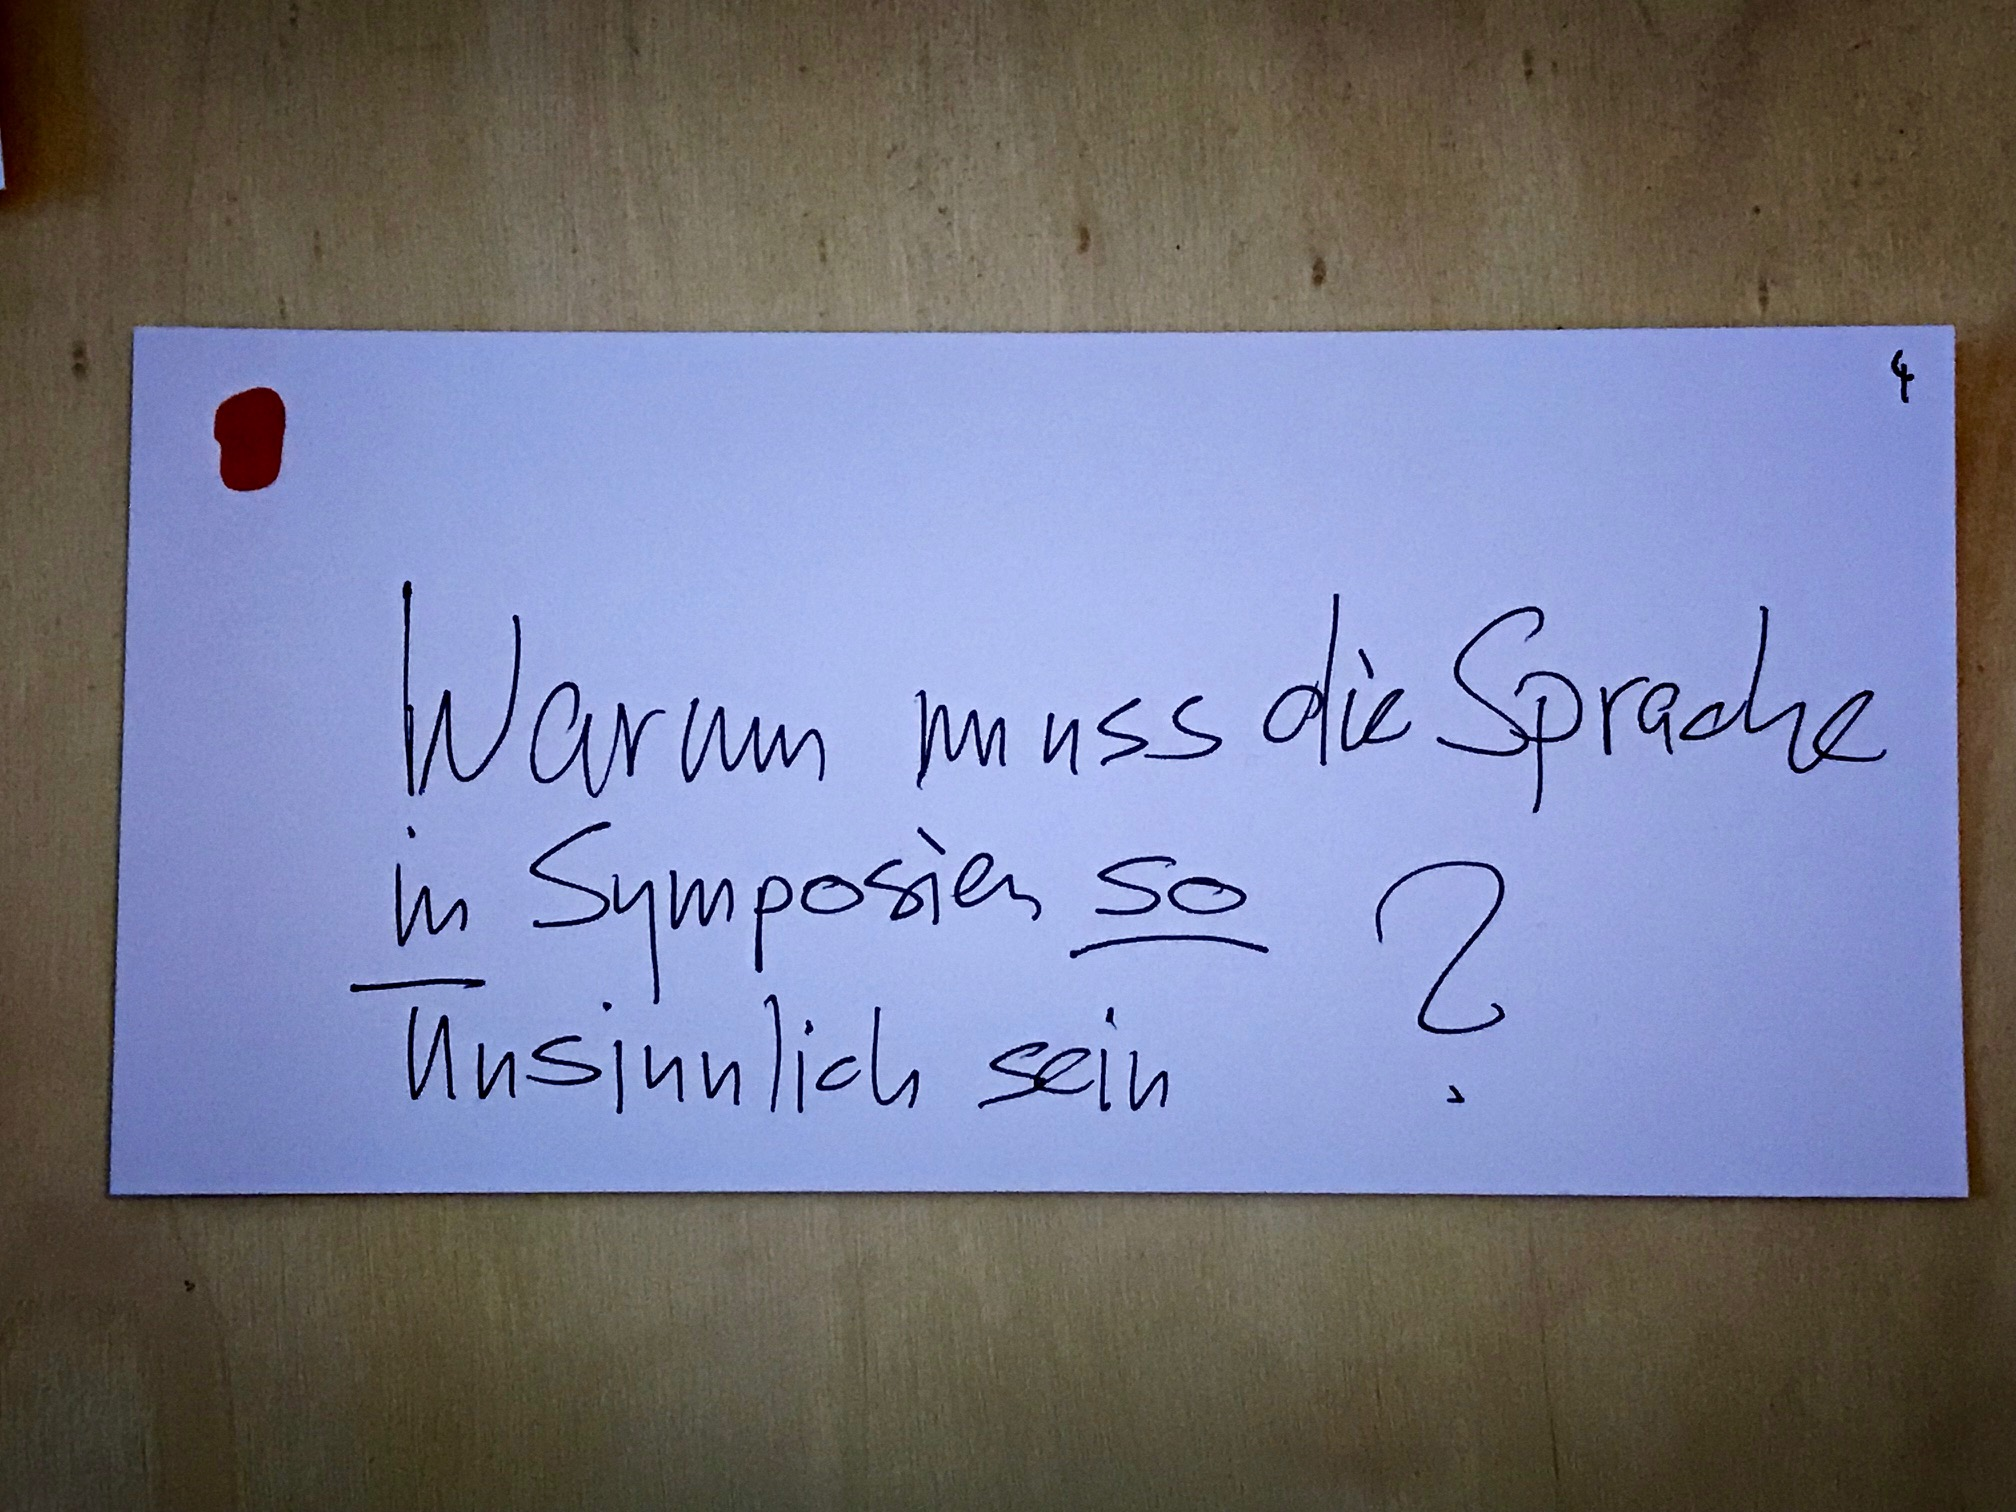 4
Warum muss die Sprache
in Symposien so ?
Unsinnlich sein